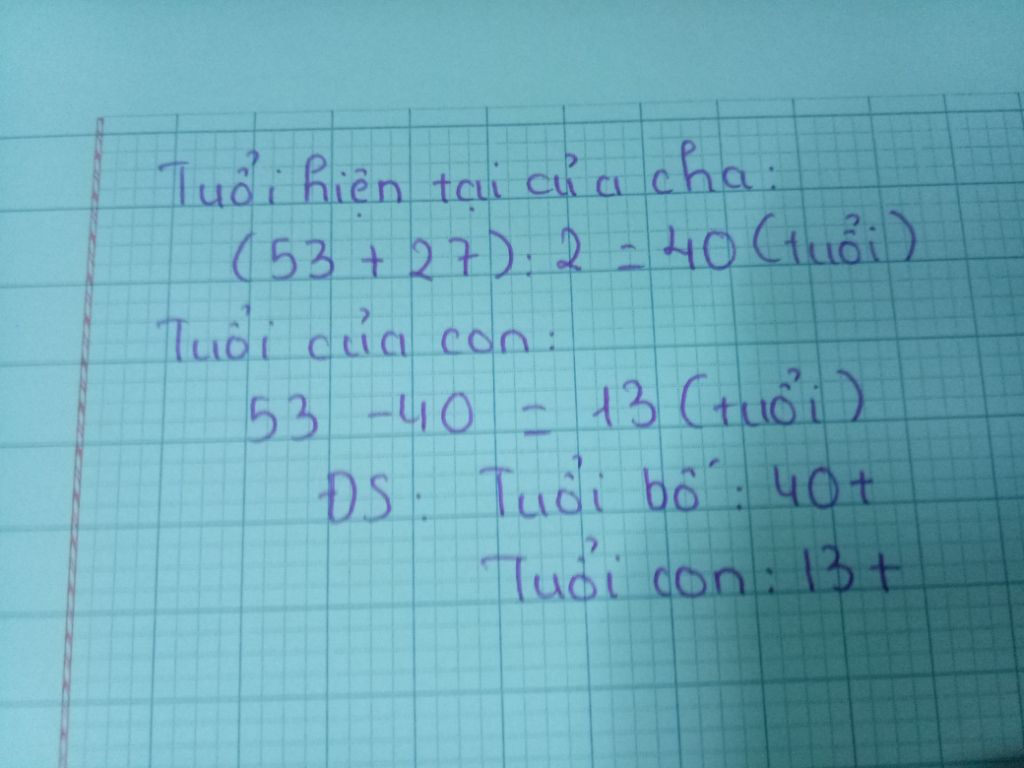 Tuổi hiện tại của cha:
(53 + 27) : 2 = 40 (tuổi)
Tuổi của con:
53 - 40 = 13 (tuổi)
ĐS: Tuổi bố: 40t
Tuổi con: 13t